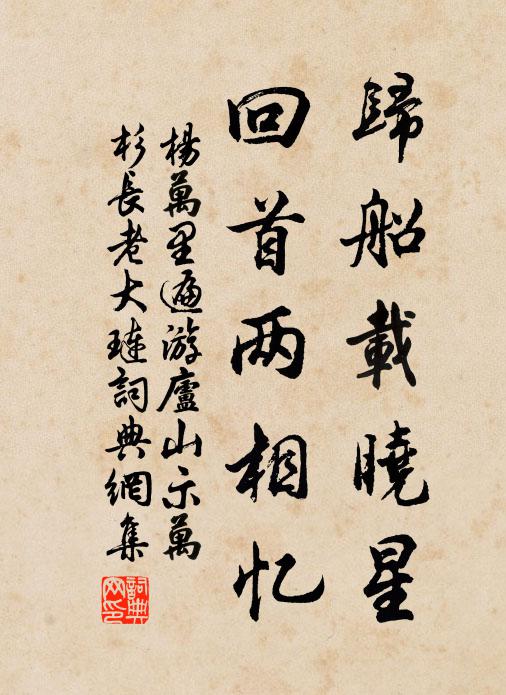 歸船載曉星
回首两相忆
楊萬里遍游廬山示萬
杉長老大璉詞典網集
詞典网印